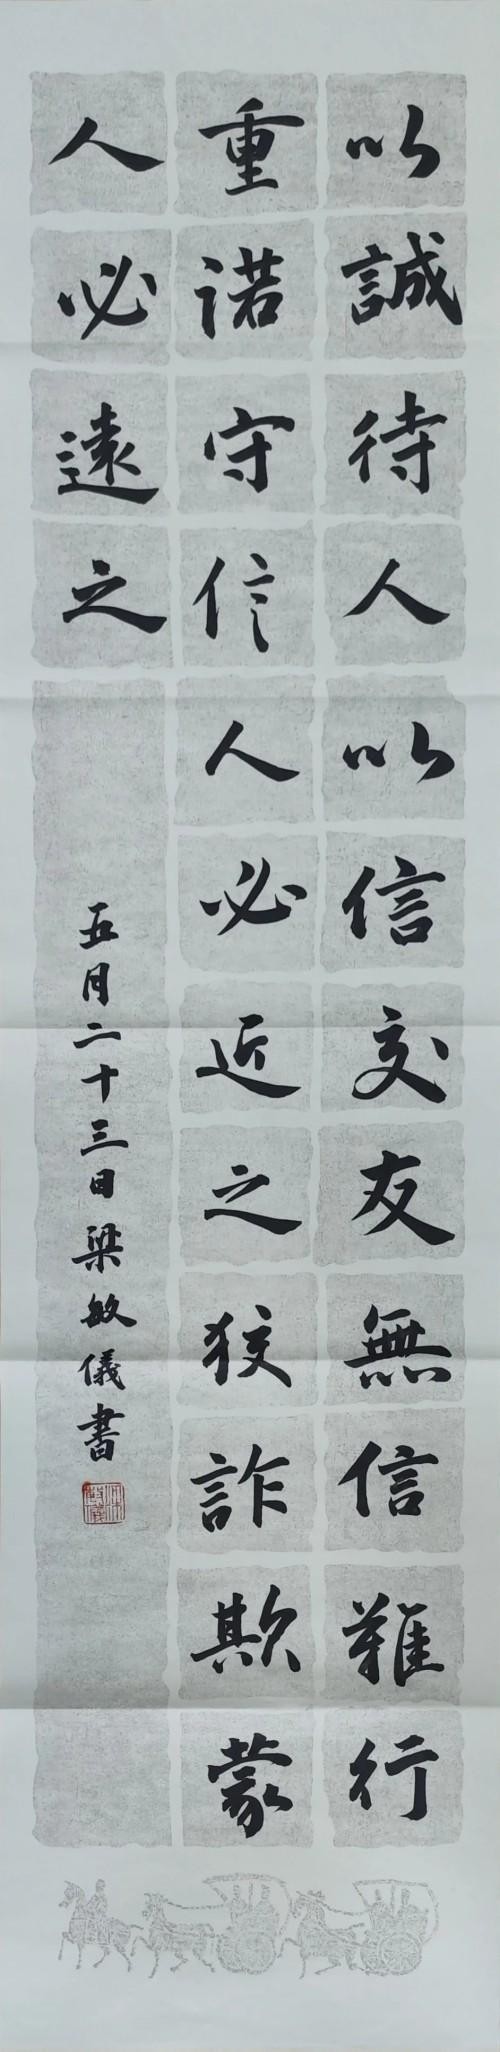 以誠待人以信交友無信難行
重諾守信人必近之狡詐欺蒙
人必遠之
五月二十三日梁敏儀書
梁敏儀